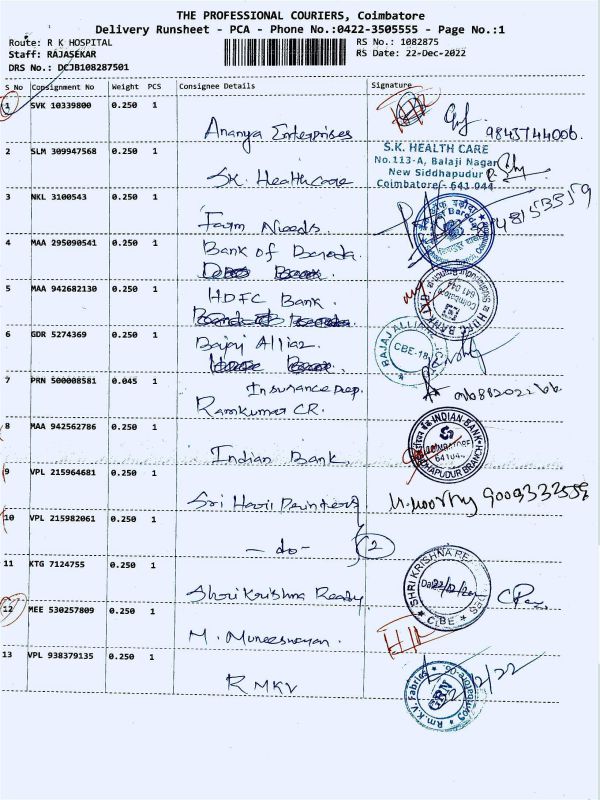 THE PROFESSIONAL COURIERS, Coimbatore
Delivery Runsheet - PCA - Phone No.:0422-3505555 - Page No.:1
Route: R K HOSPITAL
RS No.: 1082875
Staff: RAJASEKAR
RS Date: 22-Dec-2022
DRS No.: DCJB108287501
S_No Consignment No Weight PCS Consignee Details Signature
1 SVK 10339800 0.250 1
Ananya Enterprises 9843744006.
2 SLM 309947568 0.250 1
S.K. HEALTH CARE
No.113-A, Balaji Nagar
New Siddhapudur
Coimbatore - 641 044
SK. Healthcare
3 NKL 3100543 0.250 1
Farm Needs. 8148153359
4 MAA 295090541 0.250 1
Bank of Baroda.
5 MAA 942682130 0.250 1
HDFC Bank.
6 GDR 5274369 0.250 1
Bajaj Allianz
BAJAJ ALLIA
CBE-18
7 PRN 500008581 0.045 1
Insurance Dep.
Ramkumar CR.
8 MAA 942562786 0.250 1
Indian Bank.
INDIAN BANK
9 VPL 215964681 0.250 1
Sri Harii Printers
10 VPL 215982061 0.250 1
- do - 2
11 KTG 7124755 0.250 1
Shri Krishna Ready
SHRI KRISHNA RE
Date:
CBE
12 MEE 530257809 0.250 1
M. Muneeswaran.
13 VPL 938379135 0.250 1
RMKV
Rm.K.V. Fabrics
GRN
12/22